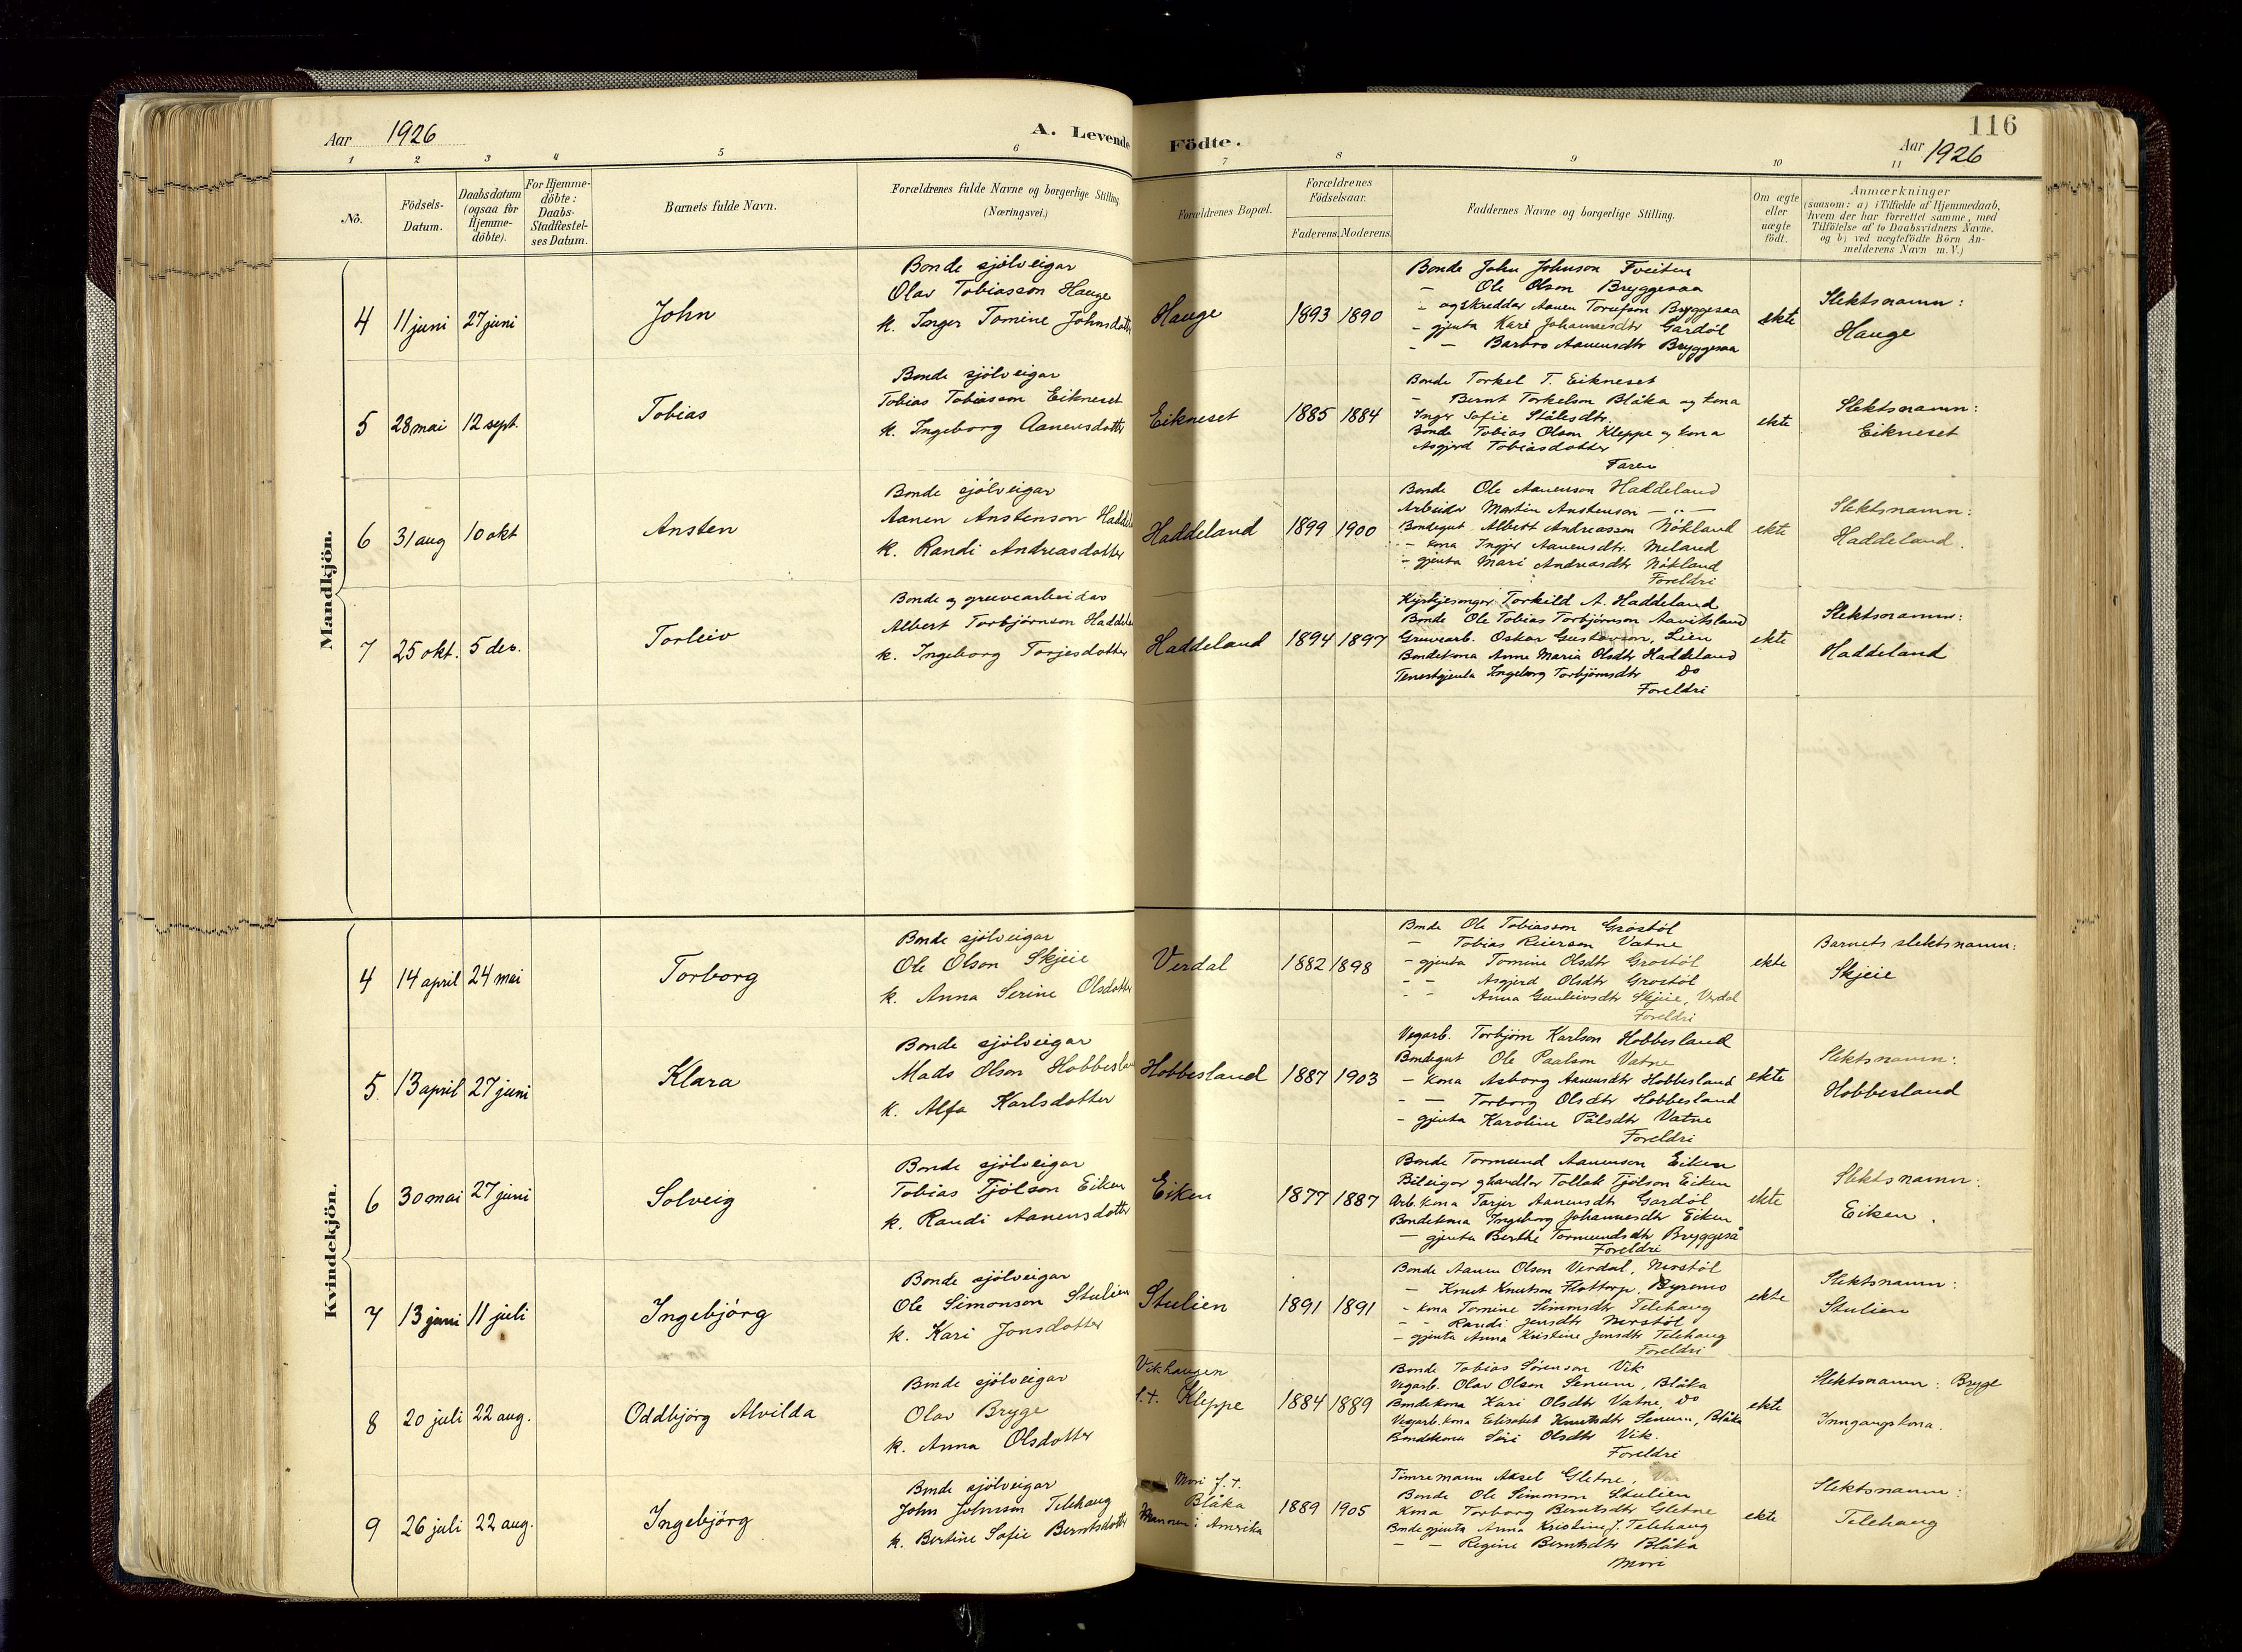 Aar 1926
A. Levende Födte.
116
Aar 1926
1 2 3 4 5 6 7 8 9 10 11
No.
Födsels-Datum.
Daabsdatum (ogsaa for Hjemme-döbte).
For Hjemme-döbte: Daabs-Stadfæstel-ses Datum.
Barnets fulde Navn.
Forældrenes fulde Navne og borgerlige Stilling. (Næringsvei.)
Forældrenes Bopæl.
Forældrenes Födselsaar.
Faderens. Moderens.
Faddernes Navne og borgerlige Stilling.
Om ægte eller uægte födt.
Anmærkninger
(saasom: a) i Tilfælde af Hjemmedaab,
hvem der har forrettet samme, med
Tilföielse af to Daabsvidners Navne,
og b) ved uægtefödte Börn An-
melderens Navn m.V.)
Mandkjön.
4 11 juni 27 juni John
Bonde sjölveigar
Olav Tobiasson Hauge
k. Inger Tomine Johnsdotter
Hauge 1893 1890
Bonde John Johnson Tveiten
- Ole Olson Bryggesaa
- og skreddar Aanen Torufson Bryggesaa
- gjenta Kari Johannesdtr Gardöl
- - Barbro Aanensdtr Bryggesaa
ekte
Slektsnamn:
Hauge
5 28 mai 12 sept. Tobias
Bonde sjölveigar
Tobias Tobiasson Eikneset
k. Ingeborg Aanensdotter
Eikneset 1885 1884
Bonde Torkel T. Eikneset
- Bernt Torkelson Blåka og kona
Inger Sofie Stålesdtr.
Bonde Tobias Olson Kleppe og kona
Asgjerd Tobiasdotter
Faren
ekte
Slektsnamn:
Eikneset
6 31 aug 10 okt Ansten
Bonde sjölveigar
Aanen Anstenson Haddel
k. Randi Andreasdotter
Haddeland 1899 1900
Bonde Ole Aanenson Haddeland
Arbeidar Martin Anstenson - " -
Bondegut Albert Andreasson Nökland
- kona Ingjer Aanensdtr. Meland
- gjenta Mari Andreasdtr Nökland
Foreldri
ekte
Slektsnamn:
Haddeland.
7 25 okt. 5 des. Torleiv
Bonde og gruvearbeidar
Albert Torbjörnson Haddela
k. Ingeborg Torjesdotter
Haddeland 1894 1897
Kyrkjesongar Torkild A. Haddeland
Bonde Ole Tobias Torbjörnson Aavitsland
Gruvearb. Oskar Gustavson, Lien
Bondekona Anne Maria Olsdtr Haddeland
Tenestgjenta Ingeborg Torbjörnsdtr Do
Foreldri
ekte
Slektsnamn:
Haddeland
Kvindekjön.
4 14 april 24 mai Torborg
Bonde sjölveigar
Ole Olson Skjeie
k. Anna Serine Olsdotter
Verdal 1882 1898
Bonde Ole Tobiasson Gröstöl
- Tobias Reierson Vatne
- gjenta Tomine Olsdtr Grostöl
- - Asgjerd Olsdtr Grostöl
- - Anna Gunleivsdtr Skjeie, Verdal
Foreldri
ekte
Barnets slektsnamn:
Skjeie
5 13 april 27 juni Klara
Bonde sjölveigar
Mads Olson Hobbeslan
k. Alfa Karlsdotter
Hobbesland 1887 1903
Vegarb. Torbjörn Karlson Hobbesland
Bondegut Ole Paalson Vatne
- kona Asborg Aanensdtr Hobbesland
- - Torborg Olsdtr Hobbesland
- gjenta Karoline Pålsdtr Vatne
Foreldri
ekte
Slektsnamn:
Hobbesland
6 30 mai 27 juni Solveig
Bonde sjölveigar
Tobias Tjölson Eiken
k. Randi Aanensdotter
Eiken 1877 1887
Bonde Tormund Aanenson Eiken
Bileigar og handlar Tollak Tjölson Eiken
Arb. kona Tarjer Aanensdtr Gardöl
Bondekona Ingeborg Johannesdtr Eiken
- gjenta Berthe Tormundsdtr Bryggeså
Foreldri
ekte
Slektsnamn:
Eiken.
7 13 juni 11 juli Ingebjörg
Bonde sjölveigar
Ole Simonson Stulien
k. Kari Jonsdotter
Stulien 1891 1891
Bonde Aanen Olson Verdal, Nerstöl
- Knut Knutson Flottorp, Byremo
- kona Tomine Simonsdtr Telehaug
- - Randi Jensdtr Nerstöl
- gjenta Anna Kristine Jonsdtr Telehaug
Foreldri
ekte
Slektsnamn:
Stulien
8 20 juli 22 aug. Oddbjörg Alvilda
Bonde sjölveigar
Olav Bryge
k. Anna Olsdotter
Vikhaugen
f.t. Kleppe 1884 1889
Bonde Tobias Sörenson Vik
Vegarb. Olav Olson Senum, Blåka
Bondekona Kari Olsdtr Vatne, Do
Vegarb. kona Elisabet Knutsdtr Senum, Blåka
Bondekona Siri Olsdtr Vik.
Foreldri
ekte
Slektsnamn: Bryge
Inngangskona.
9 26 juli 22 aug. Ingebjörg
Bonde sjölveigar
John Johnson Telehaug
k. Bertine Sofie Berntsdotter
Mori f.t.
Blåka
Mannen i Amerika 1889 1905
Tömremann Aksel Gletne,
Bonde Ole Simonson Stulien
Kona Torborg Berntsdtr Gletne
Bondegjenta Anna Kristine J. Telehaug
- - Regine Berntsdtr Blåka
Mori
ekte
Slektsnamn:
Telehaug